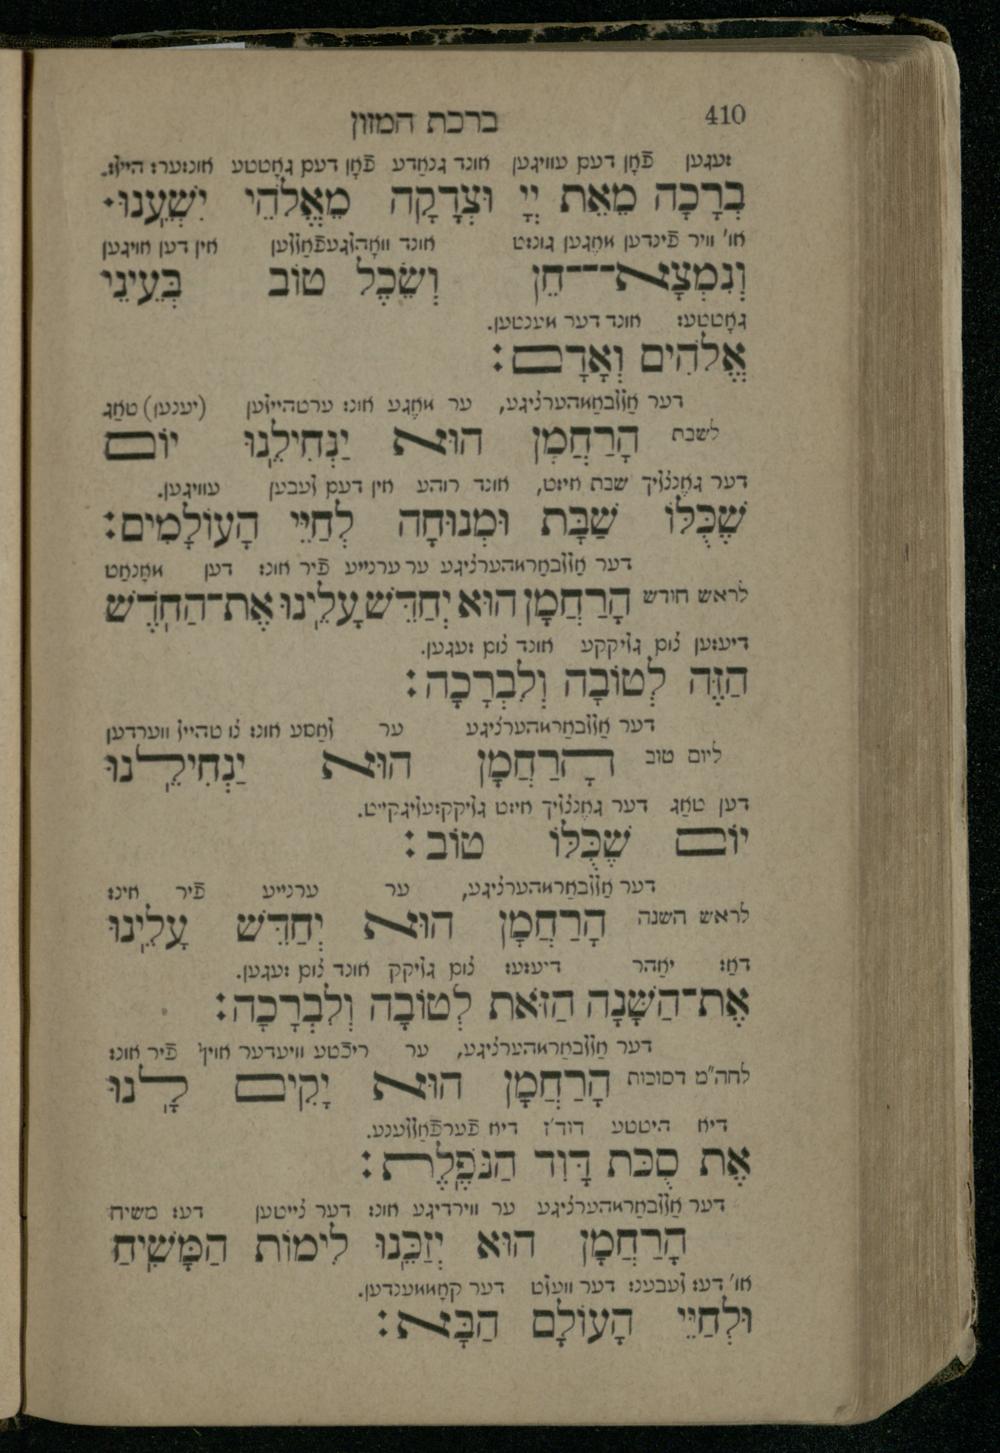 410 ברכת המזון
זעגען פֿאָן דעם עוויגען אונד גנאַדע פֿאָן דעם גאָטטע אונזערז הייל׳ז.
בְרָכָה מֵאֵת יְיָ וּצְדָקָה מֵאֱלֹהֵי יִשְׁעֵנוּ.
או' וויר פֿינדען מאֶגען גונסט אונד וואָהלגעפֿאַללען אין דען אויגען
וְנִמְצָא־חֵן וְשֵׂכֶל טוֹב בְּעֵינֵי
גאָטטעס אונד דער מענשען.
אֱלֹהִים וְאָדָם:
דער אַללבאַרמהערציגע, ער מאָגע אונס ערטהיילען (יענען) טאַג
לשבת הָרַחֲמָן הוּא יַנְחִילֵנוּ יוֹם
דער גאֶנצליך שבת איזט, אונד רוהע אין דעם לעבען עוויגען.
שֶׁכֻּלּוֹ שַׁבָּת וּמְנוּחָה לְחַיֵּי הָעוֹלָמִים:
דער אַללבאַרמהערציגע ער ערנייע פֿיר אונס דען מאָנאַט
לראש חודש הָרַחֲמָן הוּא יְחַדֵּשׁ עָלֵינוּ אֶת־הַחֹדֶשׁ
דיעזען צום גליקקע אונד צום זעגען.
הַזֶּה לְטוֹבָה וְלִבְרָכָה:
דער אַללבאַרמהערציגע ער לאַססע אונס צו טהייל ווערדען
ליום טוב הָרַחֲמָן הוּא יַנְחִילֵנוּ
דען טאַג דער גאֶנצליך איזט גליקקזעליגקייט.
יוֹם שֶׁכֻּלּוֹ טוֹב:
דער אַללבאַרמהערציגע, ער ערנייע פֿיר אינס
לראש השנה הָרַחֲמָן הוּא יְחַדֵּשׁ עָלֵינוּ
דאַס יאַהר דיעזעס צום גליקק אונד צום זעגען.
אֶת־הַשָּׁנָה הַזֹּאת לְטוֹבָה וְלִבְרָכָה:
דער אַללבאַרמהערציגע, ער ריכֿטע וויעדער אויף פֿיר אונס
לחה״מ דסוכות הָרַחֲמָן הוּא יָקִים לָנוּ
דיא היטטע דוד'ז דיא פֿערפֿאַללענע.
אֶת סֻכַּת דָּוִד הַנֹּפֶלֶת:
דער אַללבאַרמהערציגע ער ווירדיגע אונס דער צייטען דעס משיח
הָרַחֲמָן הוּא יְזַכֵּנוּ לִימוֹת הַמָּשִׁיחַ
או' דעס לעבענס דער וועלט דער קאָממענדען.
וּלְחַיֵּי הָעוֹלָם הַבָּא: